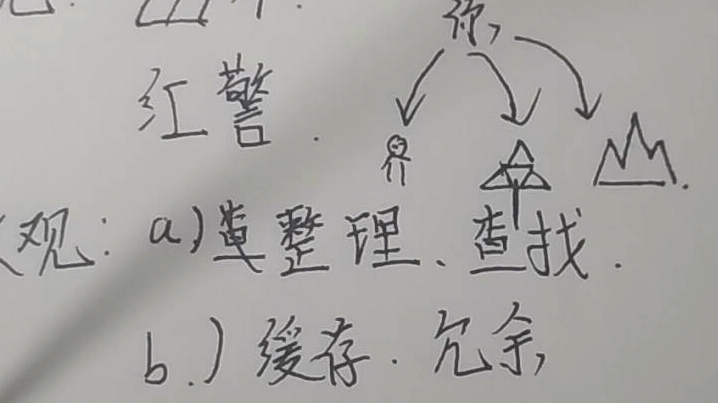 你,
红警.
观: a) 整理、查找.
b.) 缓存. 冗余,